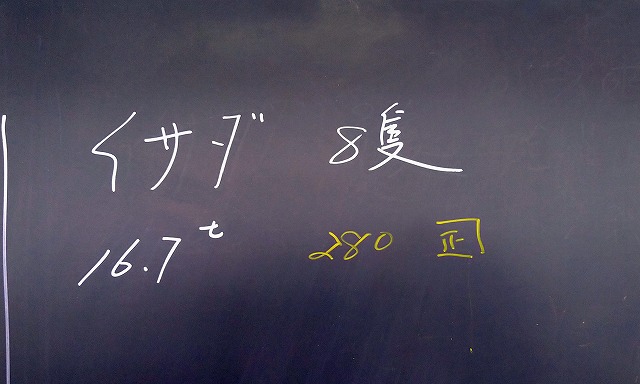 イサダ 8隻
16.7t 280 正